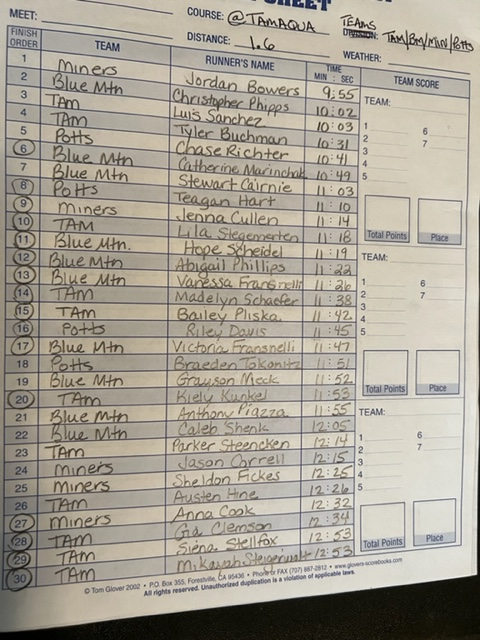 SHEET
MEET: COURSE: @TAMAQUA TEAMS
DIVISION: TAM/BM/MIN/Potts
DISTANCE: 1.6 WEATHER:
FINISH ORDER TEAM RUNNER'S NAME TIME MIN : SEC TEAM SCORE
1 Miners Jordan Bowers 9:55
2 Blue Mtn Christopher Phipps 10:02
3 TAM Luis Sanchez 10:03
4 TAM Tyler Buchman 10:31
5 Potts Chase Richter 10:41
6 Blue Mtn Catherine Marinchak 10:49
7 Blue Mtn Stewart Cairnie 11:03
8 Potts Teagan Hart 11:10
9 Miners Jenna Cullen 11:14
10 TAM Lila Stegemerten 11:18
11 Blue Mtn. Hope Scheidel 11:19
12 Blue Mtn Abigail Phillips 11:22
13 Blue Mtn Vanessa Fransnelli 11:26
14 TAM Madelyn Schaefer 11:38
15 TAM Bailey Pliska 11:42
16 Potts Riley Davis 11:45
17 Blue Mtn Victoria Fransnelli 11:47
18 Potts Braeden 11:51
19 Blue Mtn Grayson Meck 11:52
20 TAM Kiely Kunkel 11:53
21 Blue Mtn Anthony Piazza 11:55
22 Blue Mtn Caleb Shenk 12:05
23 TAM Parker Steencken 12:14
24 Miners Jason Correll 12:15
25 Miners Sheldon Fickes 12:25
26 TAM Austen Hine 12:26
27 Miners Anna Cook 12:32
28 TAM Gia Clemson 12:34
29 TAM Siena Stellfox 12:53
30 TAM Steigerwalt 12:53
TEAM:
1 6
2 7
3
4
5
Total Points Place
TEAM:
1 6
2 7
3
4
5
Total Points Place
TEAM:
1 6
2 7
3
4
5
Total Points Place
© Tom Glover 2002 • P.O. Box 355, Forestville, CA 95436 • Phone or FAX (707) 887-2812 • www.glovers-scorebooks.com
All rights reserved. Unauthorized duplication is a violation of applicable laws.